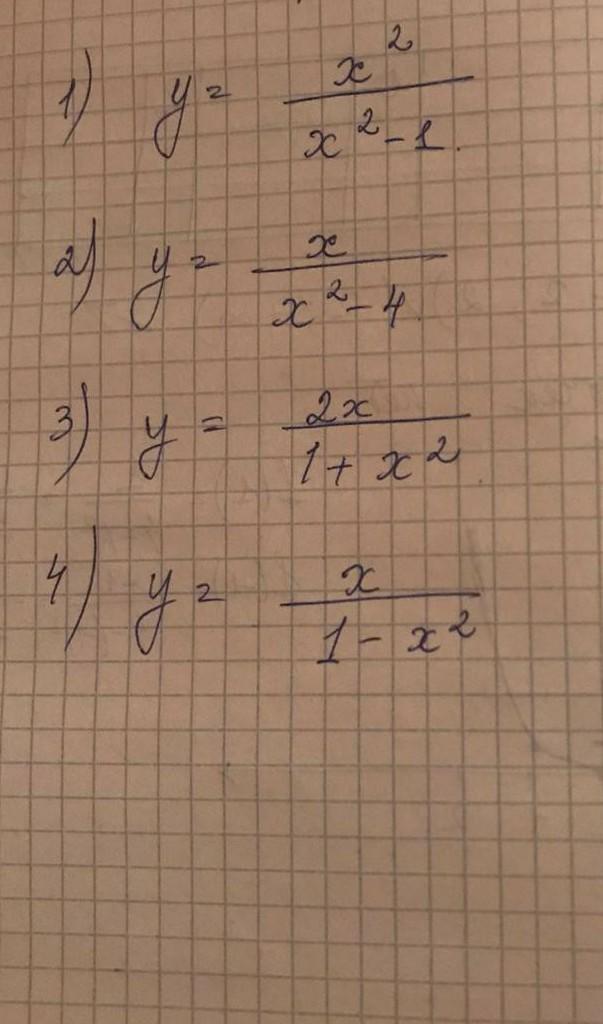 1) y = x² / x² - 1.
2) y = x / x² - 4.
3) y = 2x / 1 + x²
4) y = x / 1 - x²